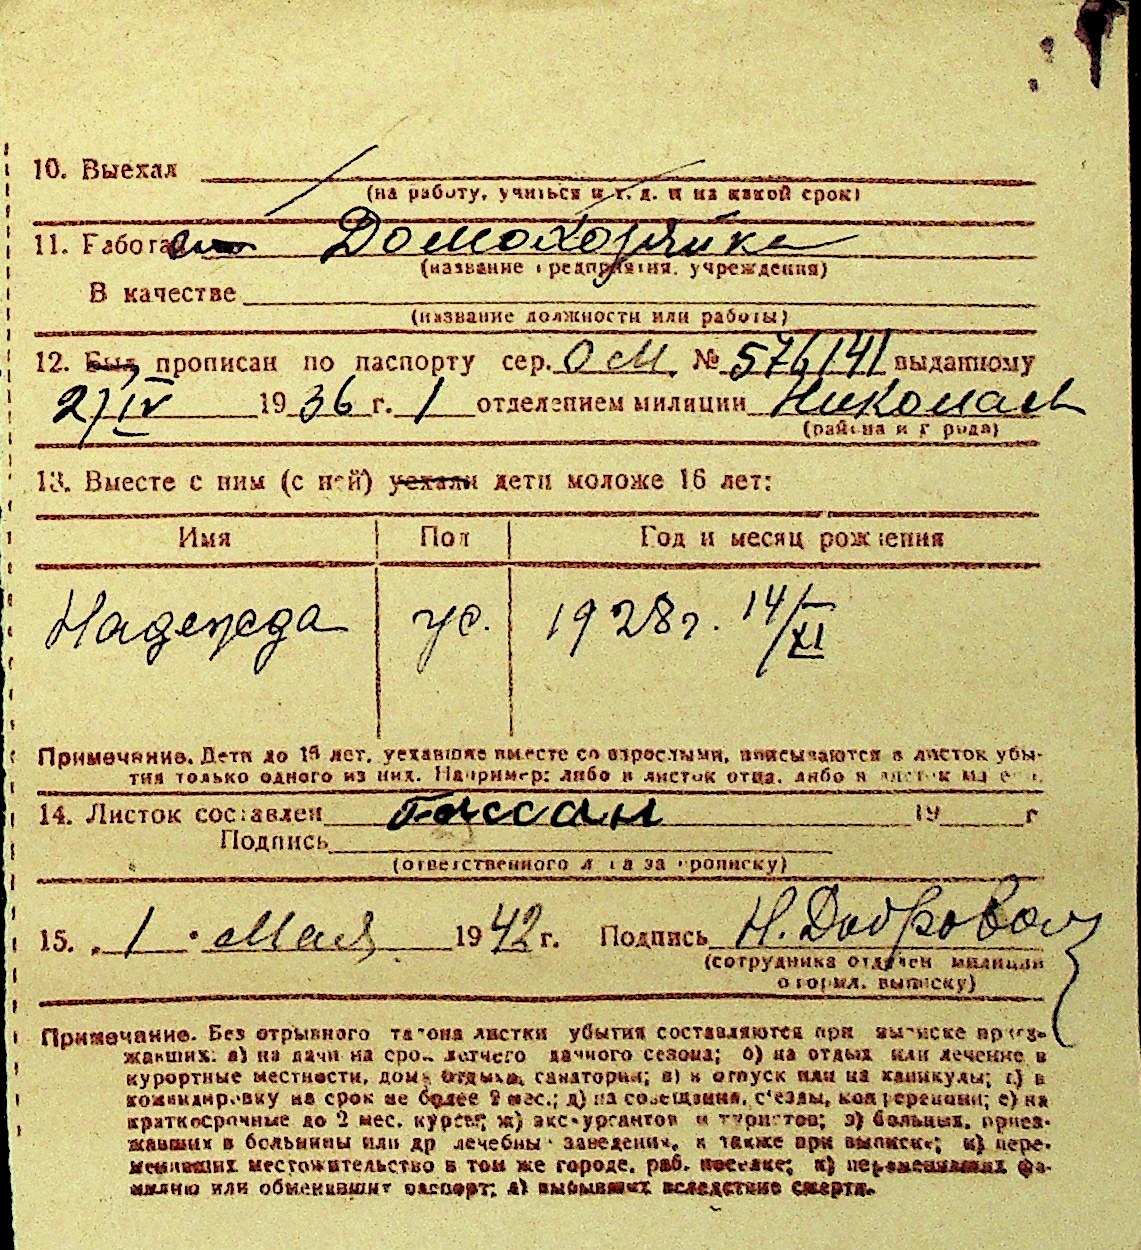 10. Выехал
(на работу, учиться и т. д. и на какой срок)
11. Работа Домохозяйка
(название предприятия, учреждения)
В качестве
(название должности или работы)
12. Был прописан по паспорту сер. ОМ № 576141 выданному
27/IV 1936 г. 1 отделением милиции Николаев
(района и города)
13. Вместе с ним (с ней) уехали дети моложе 16 лет:
Имя Пол Год и месяц рождения
Надежда ж. 1928 г. 14/XI
Примечание. Дети до 16 лет, уехавшие вместе со взрослыми, вписываются в листок убы-
тия только одного из них. Например: либо в листок отца, либо в листок матери.
14. Листок составлен 19 г
Подпись
(ответственного лица за прописку)
15. 1 Мая 1942 г. Подпись Н. Добровол
(сотрудника отделен милиции
оформл. выписку)
Примечание. Без отрывного талона листки убытия составляются при выписке приез-
жавших: а) на дачи на срок летнего дачного сезона; б) на отдых или лечение в
курортные местности, дома отдыха, санатории; в) в отпуск или на каникулы; г) в
командировку на срок не более 2 мес.; д) на совещания, с'езды, конференции; е) на
краткосрочные до 2 мес. курсы; ж) экскурсантов и туристов; з) больных, приез-
жавших в больницы или др лечебны заведения, а также при выписке; и) пере-
менивших местожительство в том же городе, раб. поселке; к) переменивших фа-
милию или обменявших паспорт; л) выбывших вследствие смерти.